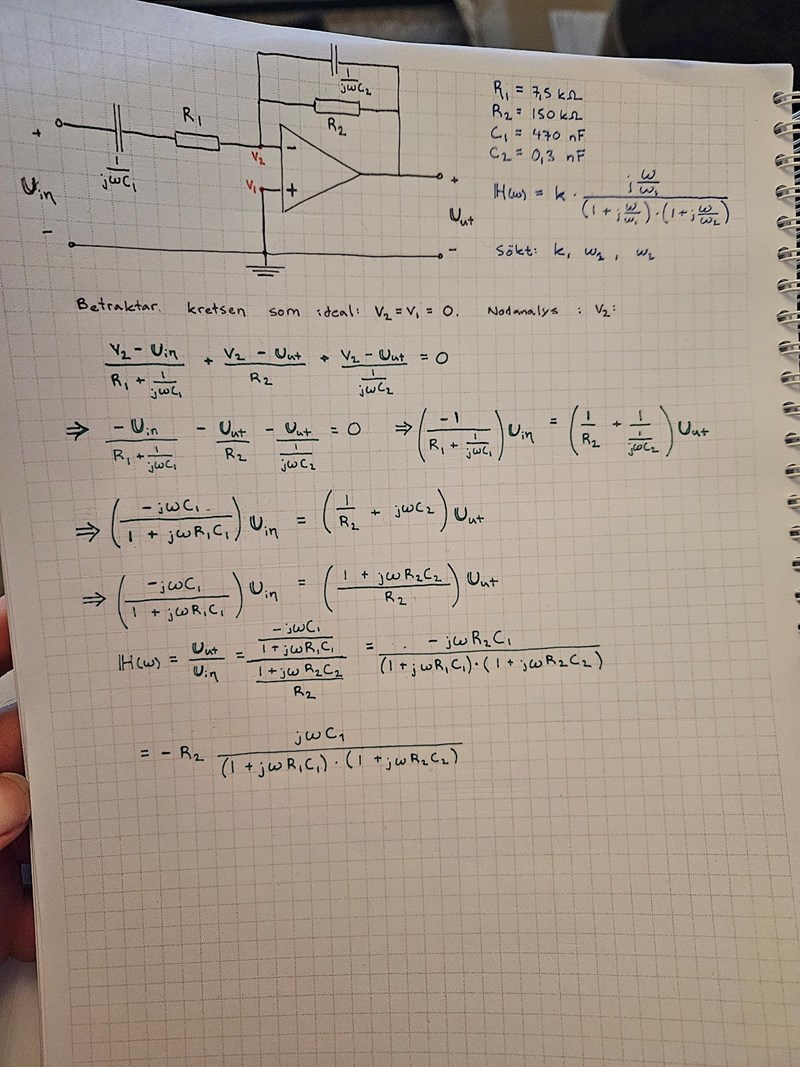 1/jωC₂
R₁
R₂
V₂
V₁
-
+
+
1/jωC₁
Uin
-
+
Uut
-
R₁ = 7,5 kΩ
R₂ = 150 kΩ
C₁ = 470 nF
C₂ = 0,3 nF
H(ω) = k · (j ω/ω₁) / ((1 + j ω/ω₁) · (1 + j ω/ω₂))
Sökt: k, ω₁, ω₂
Betraktar kretsen som ideal: V₂ = V₁ = 0. Nodanalys: V₂:
(V₂ - Uin)/(R₁ + 1/jωC₁) + (V₂ - Uut)/R₂ + (V₂ - Uut)/(1/jωC₂) = 0
⇒ -Uin/(R₁ + 1/jωC₁) - Uut/R₂ - Uut/(1/jωC₂) = 0 ⇒ (-1/(R₁ + 1/jωC₁)) Uin = (1/R₂ + 1/(1/jωC₂)) Uut
⇒ (-jωC₁/(1 + jωR₁C₁)) Uin = (1/R₂ + jωC₂) Uut
⇒ (-jωC₁/(1 + jωR₁C₁)) Uin = ((1 + jωR₂C₂)/R₂) Uut
H(ω) = Uut/Uin = (-jωC₁/(1 + jωR₁C₁))/((1 + jωR₂C₂)/R₂) = -jωR₂C₁/((1 + jωR₁C₁) · (1 + jωR₂C₂))
= - R₂ jωC₁/((1 + jωR₁C₁) · (1 + jωR₂C₂))